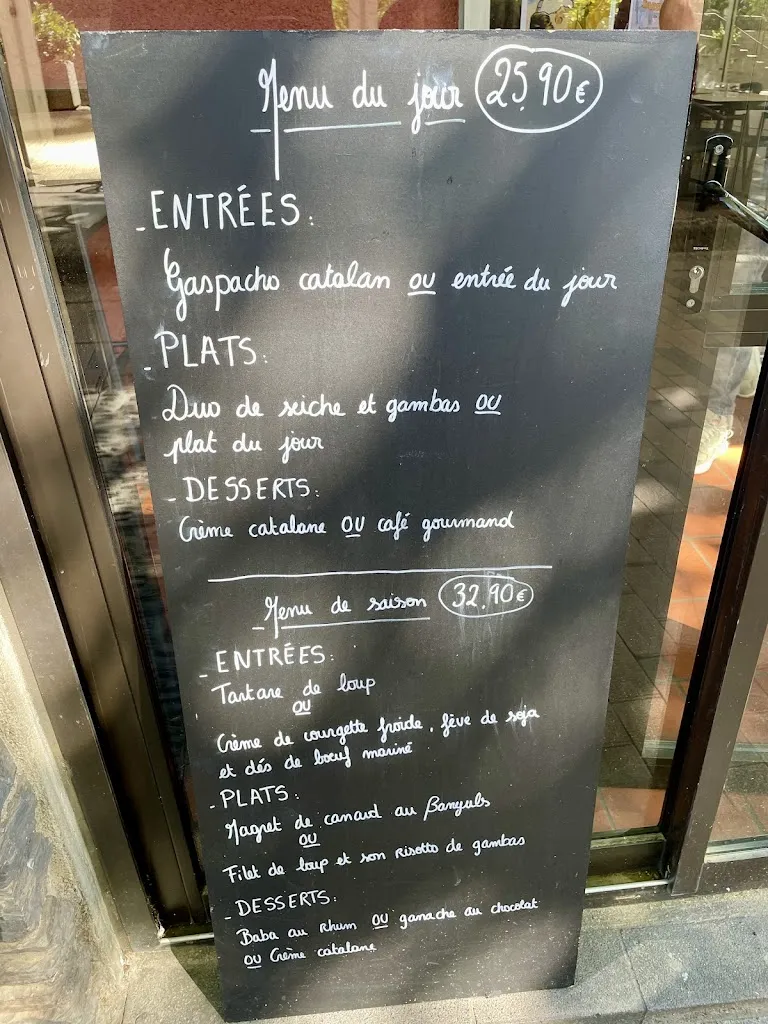 Menu du jour 25.90€
- ENTRÉES:
Gaspacho catalan ou entrée du jour
- PLATS:
Duo de seiche et gambas ou
plat du jour
- DESSERTS:
Crème catalane OU café gourmand
Menu de saison 32.90€
- ENTRÉES:
Tartare de loup
ou
Crème de courgette froide, fève de soja
et dés de boeuf mariné
- PLATS:
Magret de canard au Banyuls
ou
Filet de loup et son Risotto de gambas
- DESSERTS:
Baba au Rhum OU ganache au chocolat
ou Crème catalane